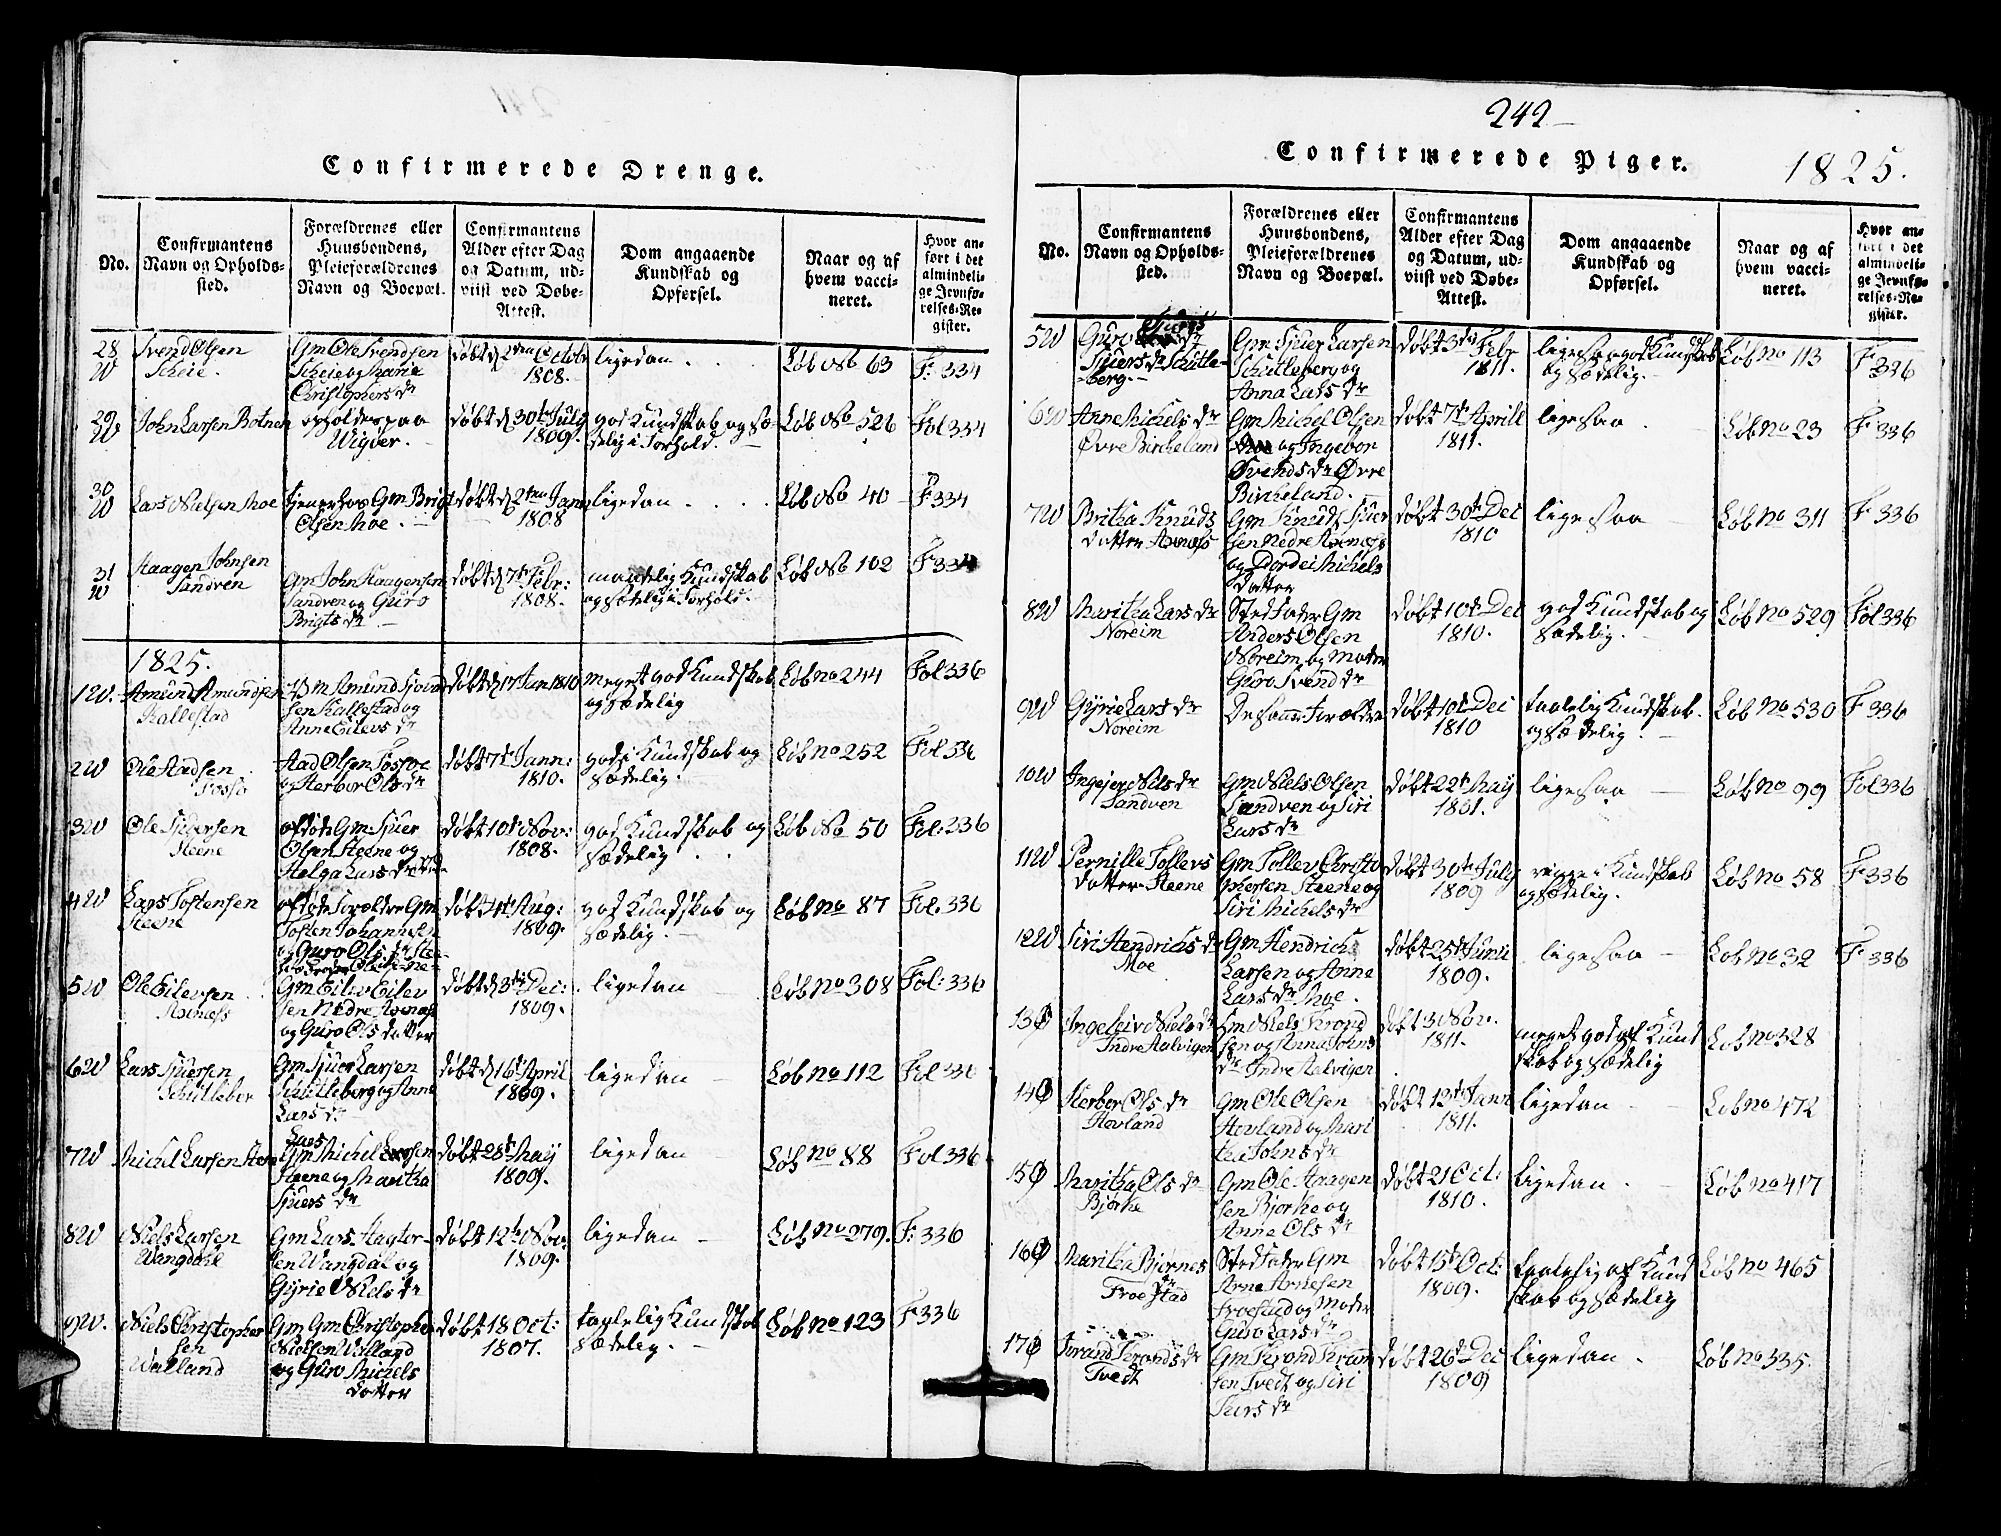 242
Confirmerede Drenge.
No.
Confirmantens
Navn og Opholds-
sted.
Forældrenes eller
Huusbondens,
Pleieforældrenes
Navn og Boepæl.
Confirmantens
Alder efter Dag
og Datum, ud-
viist ved Døbe-
Attest.
Dom angaaende
Kundskab og
Opførsel.
Naar og af
hvem vacci-
neret.
Hvor an-
ført i det
almindeli-
ge Jevnfø-
relses-Re-
gister.
28
W
Svend Olsen
Scheie.
Gm Ole Svendsen
Scheie og Marie
Christophers dr
døbt d 2den Octobr
1808.
ligedan
Løb No 63
F: 334
29
W
John Larsen Botnen
opholder paa
Wigøer.
døbt d 30t July
1809.
god Kundskab og sæ-
delig i Forhold.
Løb No 526
Fol 334
30
W
Lars Nielsen Moe
tjener hos Gm Brigt
Olsen Moe.
døbt d 2den Jann
1808
ligedan
Løb No 40
F: 334
31
W
Haagen Johnsen
Sandven
Gm John Haagensen
Sandven og Guro
Brigts dr
døbt d 7t Febr:
1808.
maadelig Kundskab
og sædelig i Forhold.
Løb No 102
F: 334
1825.
1 W.
Amund Amundsen
Kallestad
sen Kallestad og
Anne Eilevs dr
døbt d 17 Jan 1810
meget god Kundskab
og sædelig
Løb no 244
Fol 336
2 W
Ole Aadsen
Fosse
Aad Olsen Fosse
og Herbor Ols dr
døbt 7t Jann:
1810.
god i Kundskab og
sædelig.
Løb no 252
Fol 336
3 W
Ole Sjursen
Steene
afdøde Gm Sjuer
Olsen Steene og
Helga Lars dr
døbt 10t Nov:
1808.
god Kundskab og
sædelig
Løb No 50
Fol: 236
4 W
Lars Tostensen
Steene
afdøde Forældre Gm
Tosten Johannesen
og Guro Ols dr Ste-
døbt 4t Aug:
1809.
god Kundskab og
sædelig.
Løb no 87
Fol. 336
5 W
Ole Eilevsen
Axnæss
Gm Eilev Eilev
sen Nedre Axnæss
og Guro Ols datter
døbt d 3die Dec:
1809.
ligedan
Løb no 308
Fol: 336
6 W
Lars Sjursen
Schutleber
Gm Sjuer Larsen
Schutleberg og Anne
Lars dr
døbt d 16t April
1809.
ligedan
Løb no 112
Fol 336
7 W
Michel Larsen Steene
Lars
Gm Michel Larsen
Steene og Maritha
Sjuers dr
døbt 28t May
1809.
ligedan
Løb no 88
Fol 336
8 W
Niels Larsen
Wangdale
Gm Lars Hagtor-
sen Wangdal og
Gyrie Niels dr
døbt 12t Nov:
1809.
ligedan
Løb no 279.
F: 336
9 W.
Niels Christopher
sen
Walland
Gm Gm Christopher
Nielsen Walland
og Guro Michels
datter
døbt 18 Oct:
1807.
taalelig Kundskab
sædelig.
Løb no 123
F 336
Confirmerede Piger.
1825.
No.
Confirmantens
Navn og Opholds-
sted.
Forældrenes eller
Huusbondens,
Pleieforældrenes
Navn og Boepæl.
Confirmantens
Alder efter Dag
og Datum, ud-
viist ved Døbe-
Attest.
Dom angaaende
Kundskab og
Opførsel.
Naar og af
hvem vacci-
neret.
Hvor an-
ført i det
almindeli-
ge Jevnfø-
relses-Re-
gister.
5 W
Guro
Sjuers dr Schutle-
berg.
Gm Sjuer Larsen
Schutleberg og
Anna Lars dr
døbt 3die Febr
1811.
ligesaa god Kundskab
og sædelig.
Løb no 113
F 336
6 W
Anne Michels dr
Øvre Birkeland
Gm Michel Olsen
og Ingebor
Svends dr Øvre
Birkeland.
døbt 7t Aprill
1811.
ligesaa
Løb no 23
F 336
7 W
Britha Knuds
datter Axnæss
Gm Knud Sjuer
sen Nedre Axnæss
og Dordei Michels
datter
døbt 30t Dec
1810
ligesaa
Løb no 311
F 336
8 W
Maritha Lars dr
Noreim
Sted Fader Gm
Anders Olsen
Noreim og Moder
Guro Svend dr
døbt 10t Dec
1810.
god Kundskab og
sædelig.
Løb no 529
Fol 336
9 W
Gyrie Lars dr
Noreim
De samme Forældre
døbt 10t Dec
1810
taalelig Kundskab.
og sædelig.
Løb no 530
F 336
10 W
Ingejer Niels dr
Sandven
Gm Niels Olsen
Sandven og Siri
Lars dr
døbt 22t May
1801.
ligesaa
Løb no 99
Fol 336
11 W
Pernille Tollevs
datter Steene
Gm Tollev Christo
phersen Steene og
Siri Michels dr
døbt 30t July
1809
ringe i Kundskab
og sædelig.
Løb no 58
F 336
12 W
Siri Hendrichs dr
Moe
Gm Hendrich
Larsen og Anne
Lars dr Moe.
døbt 25t Juni
1809.
ligesaa
Løb no 32
F 336
13 Ø
Ingeleiv Niels dr
Indre Aalvigen
Gm Niels Trond
sen og Anna
dr Indre Aalvigen
døbt 3 Nov.
1811.
meget god af Kund
skab og sædelig
Løb no 328
14 Ø
Herbor Ols dr
Hovland
Gm Ole Olsen
Hovland og Mari
tha Johns dr
døbt 12t Jann
1811.
ligedan
Løb no 472
15 Ø
Maritha Ols dr
Bjørke
Gm Ole Aagen
sen Bjørke og
Anne Ols dr
døbt 21 Oct:
1810.
ligedan
Løb no 417
16 Ø
Maritha Bjørnes
dr
Froestad
Sted Fader Gm
Arne Arnesen
Froestad og Moder
Guro Lars dr
døbt 15t Oct:
1809.
taalelig af Kund
skab og sædelig
Løb no 465
17 Ø
Torand Tronds dr
Tvedt
Gm Trond Trond
sen Tvedt og Siri
Lars dr
døbt 26t Dec
1809
ligedan
Løb no 335.